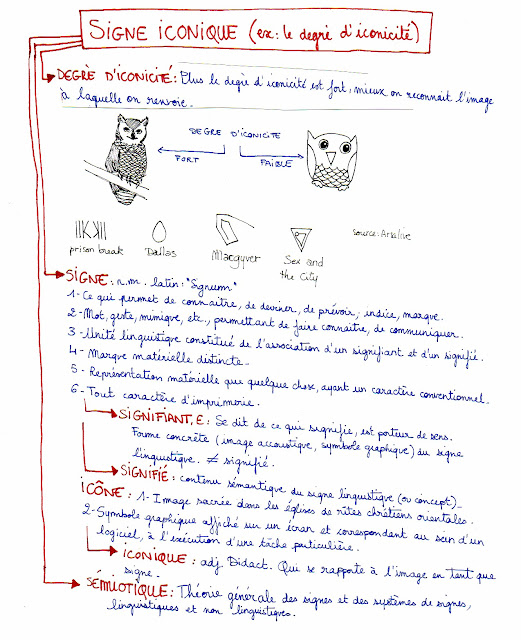 SIGNE ICONIQUE (ex: le degré d'iconicité)
DEGRÈ D'ICONICITÉ: Plus le degrè d'iconicité est fort, mieux on reconnait l'image
à laquelle on renvoie.
DEGRE D'ICONICITE
FORT FAIBLE
prison break Dallas Macgyver Sex and the City source: Arsalive
SIGNE: n.m. latin: "Signum"
1- Ce qui permet de connaître, de deviner, de prévoir; indice, marque.
2- Mot, geste, mimique, etc., permettant de faire connaître, de communiquer.
3- Unité linguistique constitué de l'association d'un signifiant et d'un signifié.
4- Marque matérielle distincte.
5- Représentation matérielle que quelque chose, ayant un caractère conventionnel.
6- Tout caractère d'imprimerie.
SIGNIFIANT,E: Se dit de ce qui signifie, est porteur de sens.
Forme concrète (image accoustique, symbole graphique) du signe
linguistique. ≠ signifié.
SIGNIFIÉ: contenu sémantique du signe linguistique (ou concept).
ICÔNE: 1- Image sacrée dans les églises de rites chrétiens orientales.
2- Symbole graphique affiché sur un écran et correspondant au sein d'un
logiciel, à l'exécution d'une tâche particulière.
ICONIQUE: adj. Didact. Qui se rapporte à l'image en tant que
signe.
SÉMIOTIQUE: Théorie générale des signes et des systèmes de signes,
linguistiques et non linguistiques.